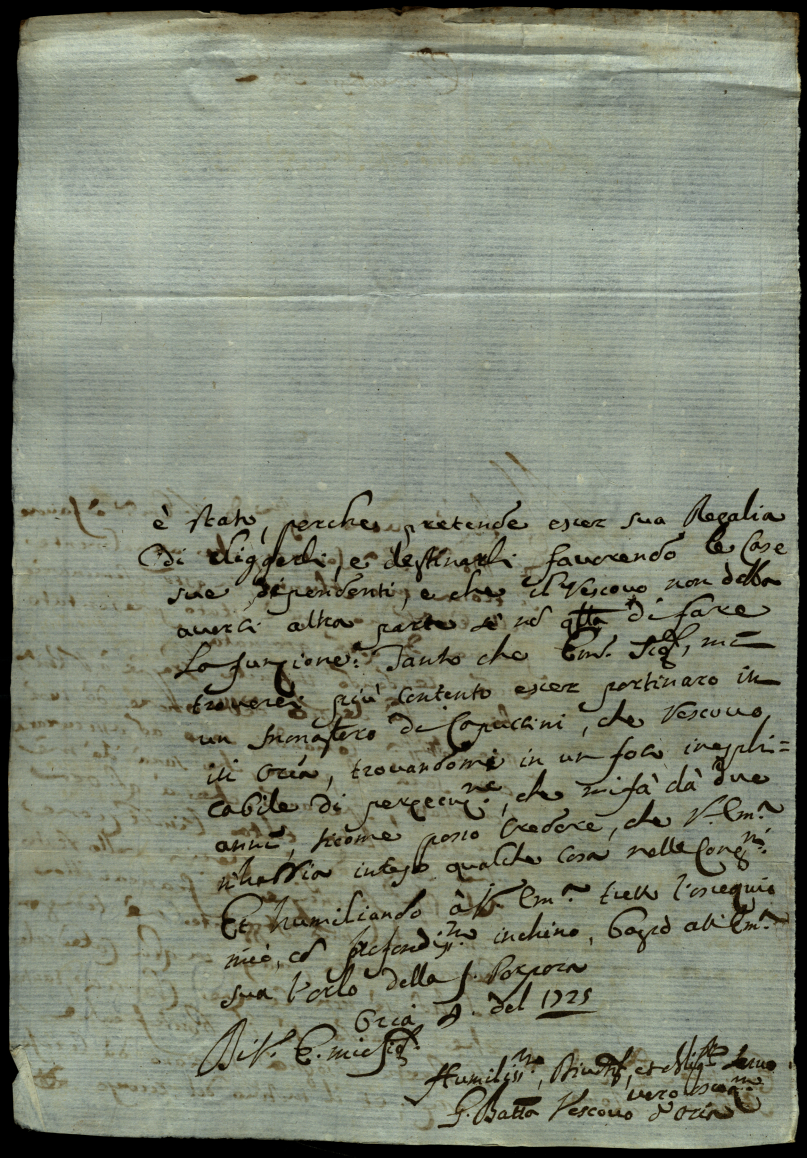 è stato, perche pretende esser sua Regalia
di eliggerli, e destinarli favorendo le Case
sue dipendenti, e che il Vescovo non debba
averci altra parte se nõ qlla di fare
la funzione. Tanto che Em. Sig.
trovarei più contento esser portinaro in
un Monastero di Capuccini, che Vescovo
in Oria, trovandomi in un foco inespli=
cabile di persecuz.ne, che mi fà dà due
anni, sicome posso credere, che V. Em.a
n'habbia inteso qualche cosa nelle Cong.ni
Et humiliando à V. Em.a tutto l'ossequio
mio, cõ profondis.mo inchino, bagio all'Em.a
sua l'orlo della S. Porpora
Oria del 1725
Di V. E. mio Sig.
Humiliss.mo, et Servo
vero
G. Batta Vescovo d'Oria